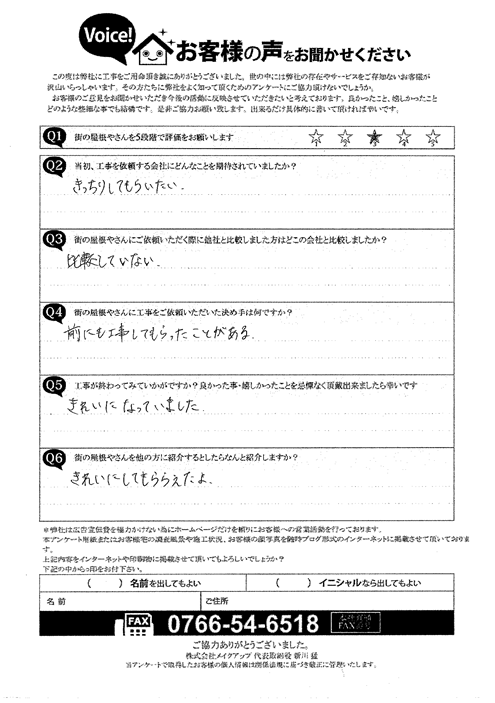 Voice!
お客様の声をお聞かせください
この度は弊社に工事をご用命頂き誠にありがとうございました。世の中には弊社の存在やサービスをご存知ないお客様が
沢山いらっしゃいます。その方たちに弊社をよく知って頂くためのアンケートにご協力頂けないでしょうか。
お客様のご意見をお聞かせいただき今後の活動に反映させていただきたいと考えております。良かったこと、嬉しかったこと
どのような些細な事でも結構です。是非ご協力お願い致します。出来るだけ具体的に書いて頂ければ幸いです。
Q1 街の屋根やさんを5段階で評価をお願いします
Q2 当初、工事を依頼する会社にどんなことを期待されていましたか?
きっちりしてもらいたい.
Q3 街の屋根やさんにご依頼いただく際に他社と比較しました方はどこの会社と比較しましたか?
比較していない.
Q4 街の屋根やさんに工事をご依頼いただいた決め手は何ですか?
前にも工事してもらったことがある.
Q5 工事が終わってみていかがですか?良かった事・嬉しかったことを忌憚なく頂戴出来ましたら幸いです
きれいになっていました.
Q6 街の屋根やさんを他の方に紹介するとしたらなんと紹介しますか?
きれいにしてもららえたよ.
※弊社は広告宣伝費を極力かけない為にホームページだけを頼りにお客様への営業活動を行っております。
本アンケート用紙またはお客様宅の調査風景や施工状況、お客様の顔写真を随時ブログ形式のインターネットに掲載させて頂いておりま
す。
上記内容をインターネットや印刷物に掲載させて頂いてもよろしいでしょうか?
下記の中から○印をお付下さい。
( ) 名前を出してもよい ( ) イニシャルなら出してもよい
名 前 ご住所
FAX 0766-54-6518
ご協力ありがとうございました。
株式会社メイクアップ 代表取締役 新川 猛
当アンケートで取得したお客様の個人情報は関係法規に基づき厳正に管理いたします。